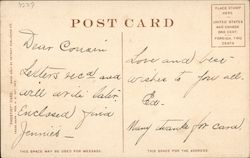 POST CARD
PLACE STAMP HERE
UNITED STATES
AND CANADA
ONE CENT
FOREIGN, TWO CENTS
Dear Cousin
Letters rec'd and
will write later.
Enclosed find
Jennies —
Love and best
wishes to you all.
Ed.
Many thanks for card
THIS SPACE MAY BE USED FOR MESSAGE.
THIS SPACE FOR THE ADDRESS